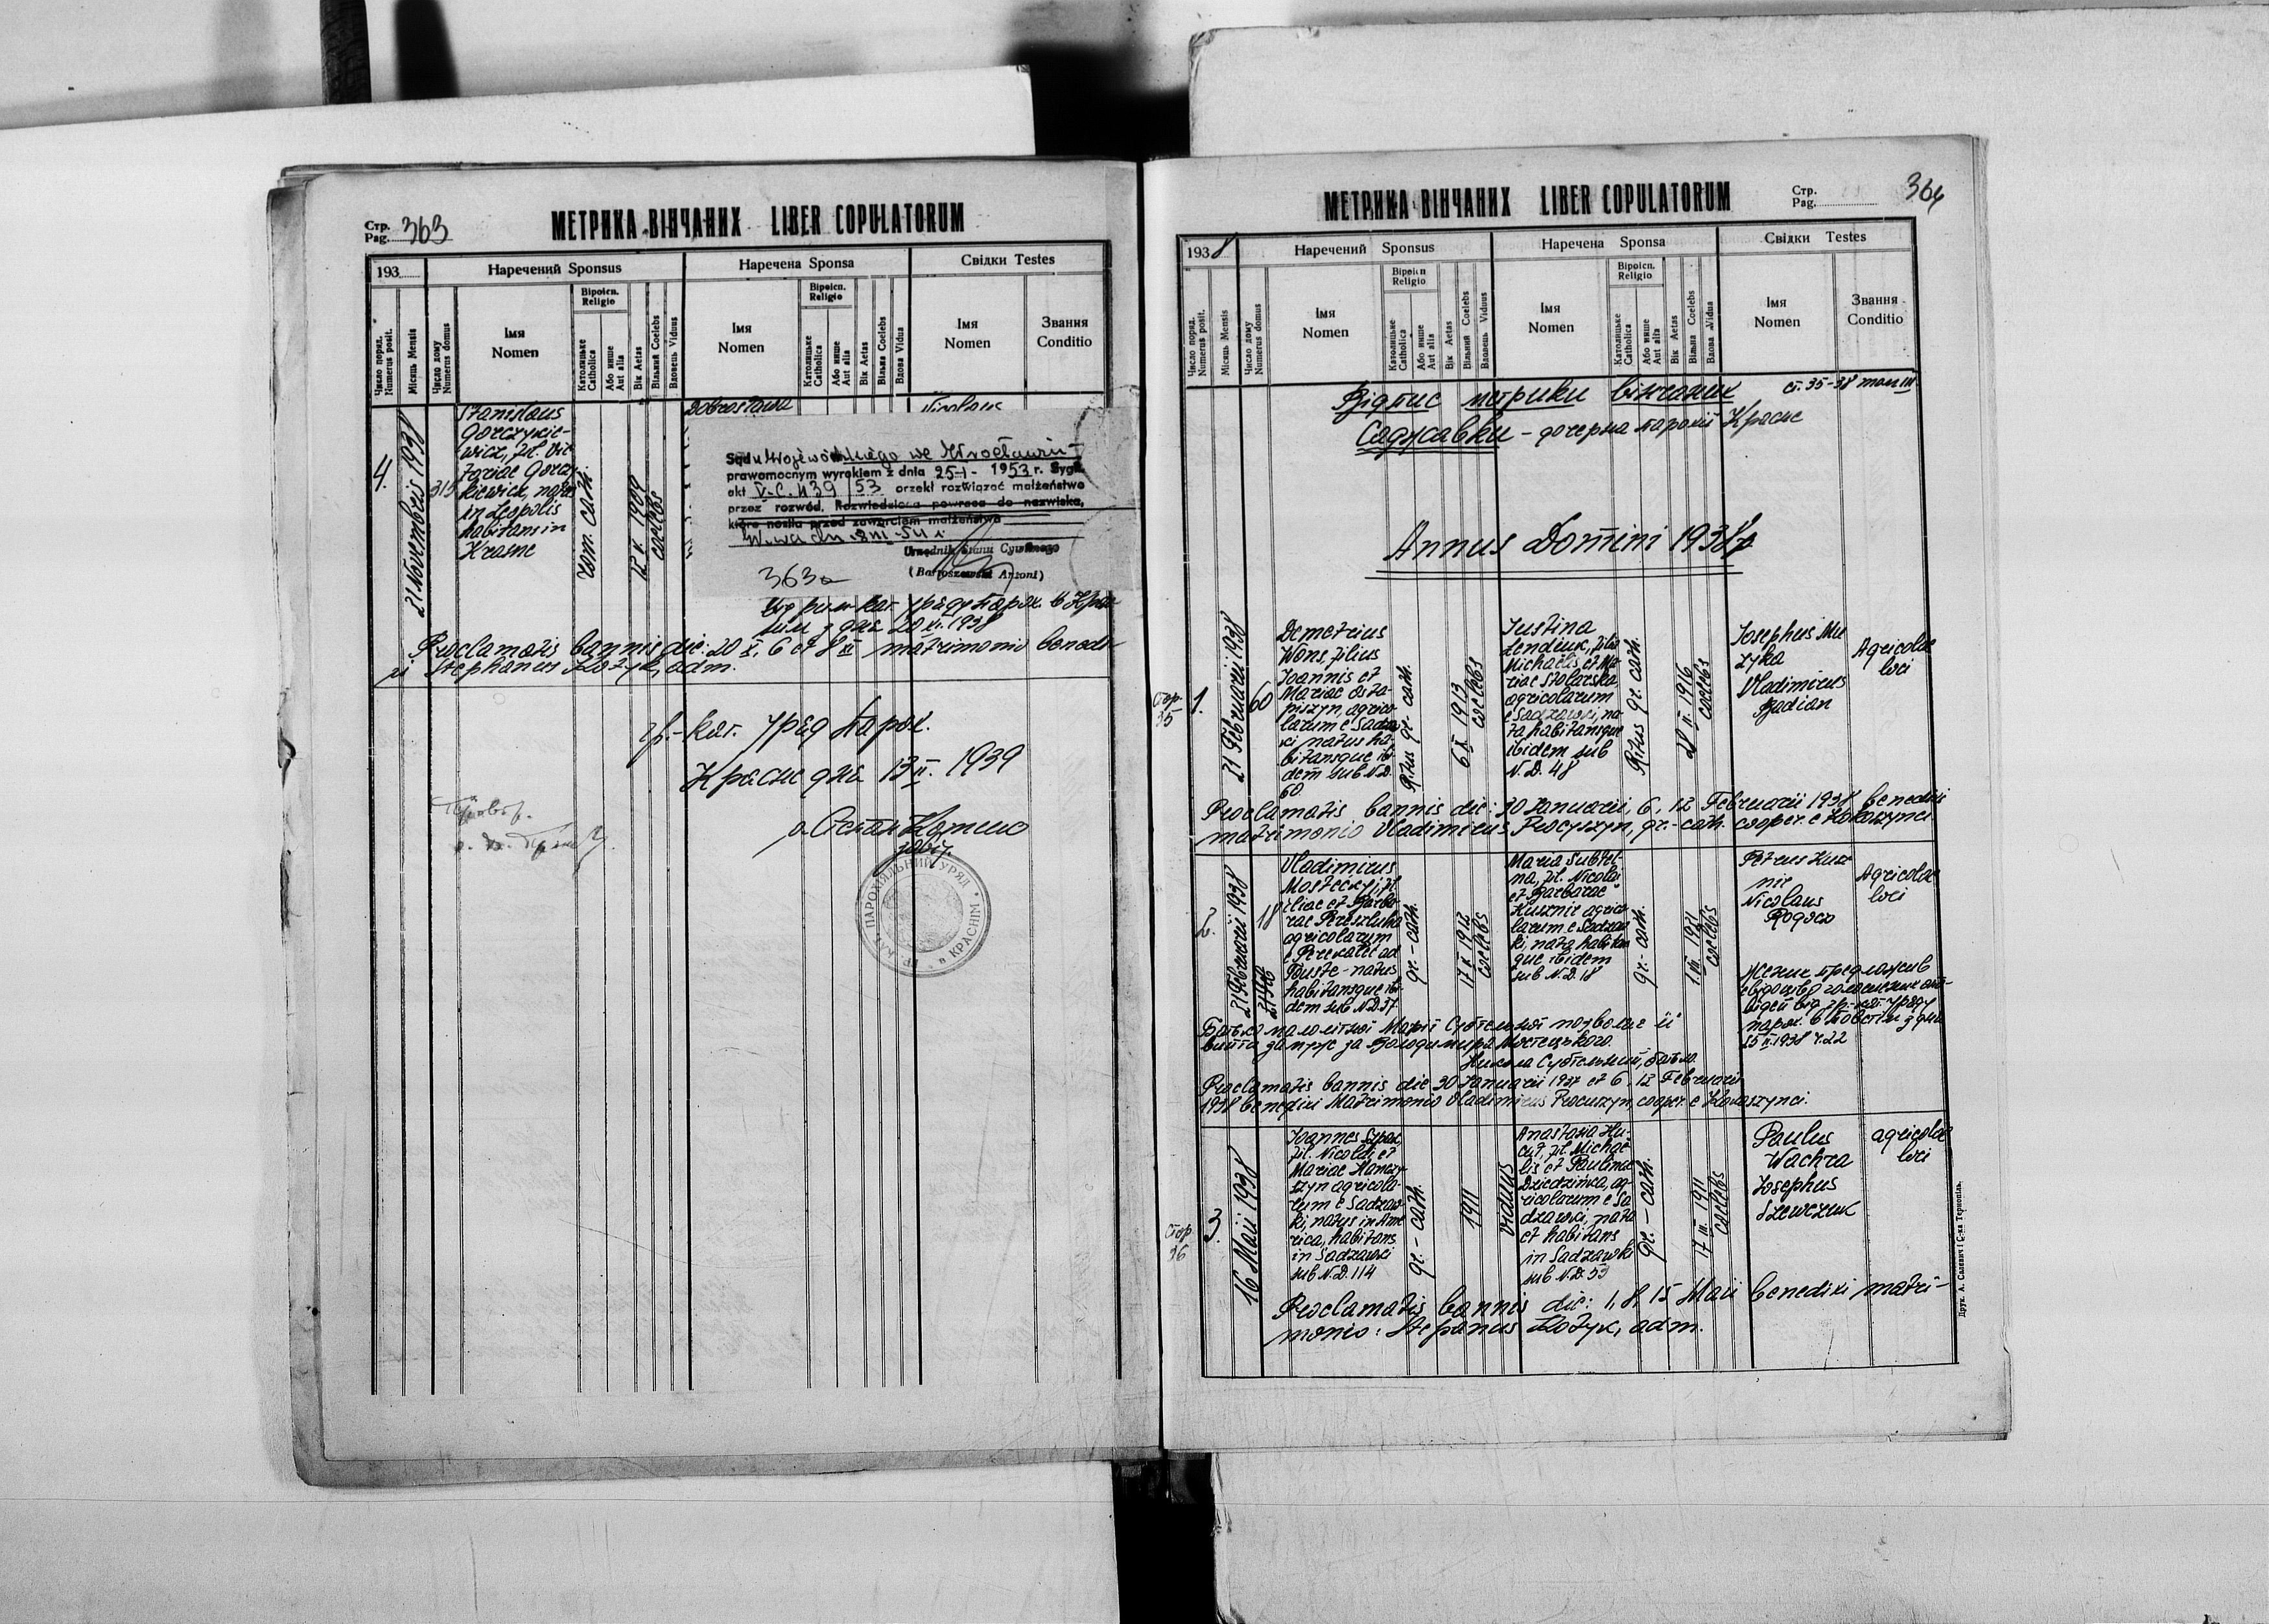 Стр.
Pag. 363
МЕТРИКА ВІНЧАНИХ LIBER COPULATORUM
193
Наречений Sponsus
Наречена Sponsa
Свідки Testes
Число поряд.
Numerus posit.
Місяць Mensis
Число дому
Numerus domus
Імя
Nomen
Віроісп.
Religio
Католицьке
Catholica
Або инше
Aut alia
Вік Aetas
Вільний Coelebs
Вдовець Viduus
Імя
Nomen
Віроісп.
Religio
Католицьке
Catholica
Або инше
Aut alia
Вік Aetas
Вільна Coelebs
Вдова Vidua
Імя
Nomen
Звання
Conditio
4.
21 Novembris 1938
315
Stanislaus
Gorczykie-
wicz, fil. Vic
toriae Gorczy
kiewicz, natus
in Leopolis
habitans in
Krasne
rom. cath.
12 V. 1909
coelebs
Dobrosława
Nicolaus
Sądu Wojewódzkiego we Wrocławiu
prawomocnym wyrokiem z dnia 25-I- 1953 r. Sygn.
akt V-C. 439/53 orzekł rozwiązać małżeństwo
przez rozwód. Rozwiedziona powraca do nazwiska,
które nosiła przed zawarciem małżeństwa
Urzędnik Stanu Cywilnego
(Bartoszewski Antoni)
363a
з дня 20 XI. 1938
Proclamatis bannis die: 20 X, 6 et 8 XI matrimonio benedi-
xi Stephanus Kotyk, adm.
гр.-кат. уряд парох.
Красне дня 13 II. 1939
завід.
ГР. КАТ. ПАРОХІЯЛЬНИЙ УРЯД * в КРАСНІМ *
Стр.
Pag.
364
МЕТРИКА ВІНЧАНИХ LIBER COPULATORUM
1938
Наречений Sponsus
Наречена Sponsa
Свідки Testes
Число поряд.
Numerus posit.
Місяць Mensis
Число дому
Numerus domus
Імя
Nomen
Віроісп.
Religio
Католицьке
Catholica
Або инше
Aut alia
Вік Aetas
Вільний Coelebs
Вдовець Viduus
Імя
Nomen
Віроісп.
Religio
Католицьке
Catholica
Або инше
Aut alia
Вік Aetas
Вільна Coelebs
Вдова Vidua
Імя
Nomen
Звання
Conditio
Відпис метрики вінчаних ст. 35-38 том III
Саджавки - дочерна парохії Красне
Annus Domini 1938
стор
35
1.
21 Februarii 1938
60
Demetrius
Wons, filius
Joannis et
Mariae Osta-
piszyn, agrico-
larum e Sadzaw
ki natus ha-
bitansque ibi
dem sub N.D.
60
Ritus gr. cath.
6 X 1913
coelebs
Justina
Lendiuk, filia
Michaelis et Ma-
riae Stolarska
agricolarum
e Sadzawki, na-
ta habitansque
ibidem sub
N. D. 48
Ritus gr. cath.
28 II. 1916
coelebs
Josephus Mu
zyka
Vladimirus
Badian
Agricolae
loci
Proclamatis bannis die: 30 Januarii, 6, 12 Februarii 1938 benedixi
matrimonio Vladimirus Procyszyn, gr.-cath. cooper. e Kokoszynci.
2.
21 Februarii 1938
18
Vladimirus
Mosteckyj, fil
Eliae et Barba
rae
agricolarum
e Perekalec ad
Duste - natus
habitansque ibi
dem sub N.D. 57
gr.-cath.
17 X 1912
coelebs
Maria Subtel-
na, fil. Nicolai
et Barbarae
Kusznir agrico
larum e Sadzaw
ki, nata habitans
que ibidem
sub N.D. 18
gr.-cath.
1. III. 1921
coelebs
Petrus Kusz
nir
Nicolaus
Rogocz
Agricolae
loci
Женик предложив
свідоцтво голошення запо-
відей від гр.-кат. уряду
парох. в Товстім з дня
15 II. 1938 ч. 22
Батько малолітної Марії Субтельної позволяє її
вийти замуж за Володимира Мостецького.
Никола Субтельний, батько.
Proclamatis bannis die 30 Januarii 1937 et 6, 12 Februarii
1938 benedixi Matrimonio Vladimirus Procyszyn, cooper. e Kokoszynci.
стор
36
3.
16 Maii 1938
Joannes Sypak
fil. Nicolai et
Mariae Hanczy
szyn agricola-
rum e Sadzaw-
ki, natus in Ame
rica, habitans
in Sadzawki
sub N.D. 114
gr.-cath.
1911
viduus
Anastasia Hu-
cuł, fil. Michae
lis et Paulinae
Dziedzinka, ag-
ricolarum e Sa
dzawki, nata
et habitans
in Sadzawki
sub N.D. 53
gr.-cath.
17 III. 1911
coelebs
Paulus
Wachra
Josephus
Szewczuk
agricolae
loci
Proclamatis bannis die: 1, 8, 15 Maii benedixi matri-
monio: Stepanus Kotyk, adm.
Друк. А. Салевич і С-ка Тернопіль.